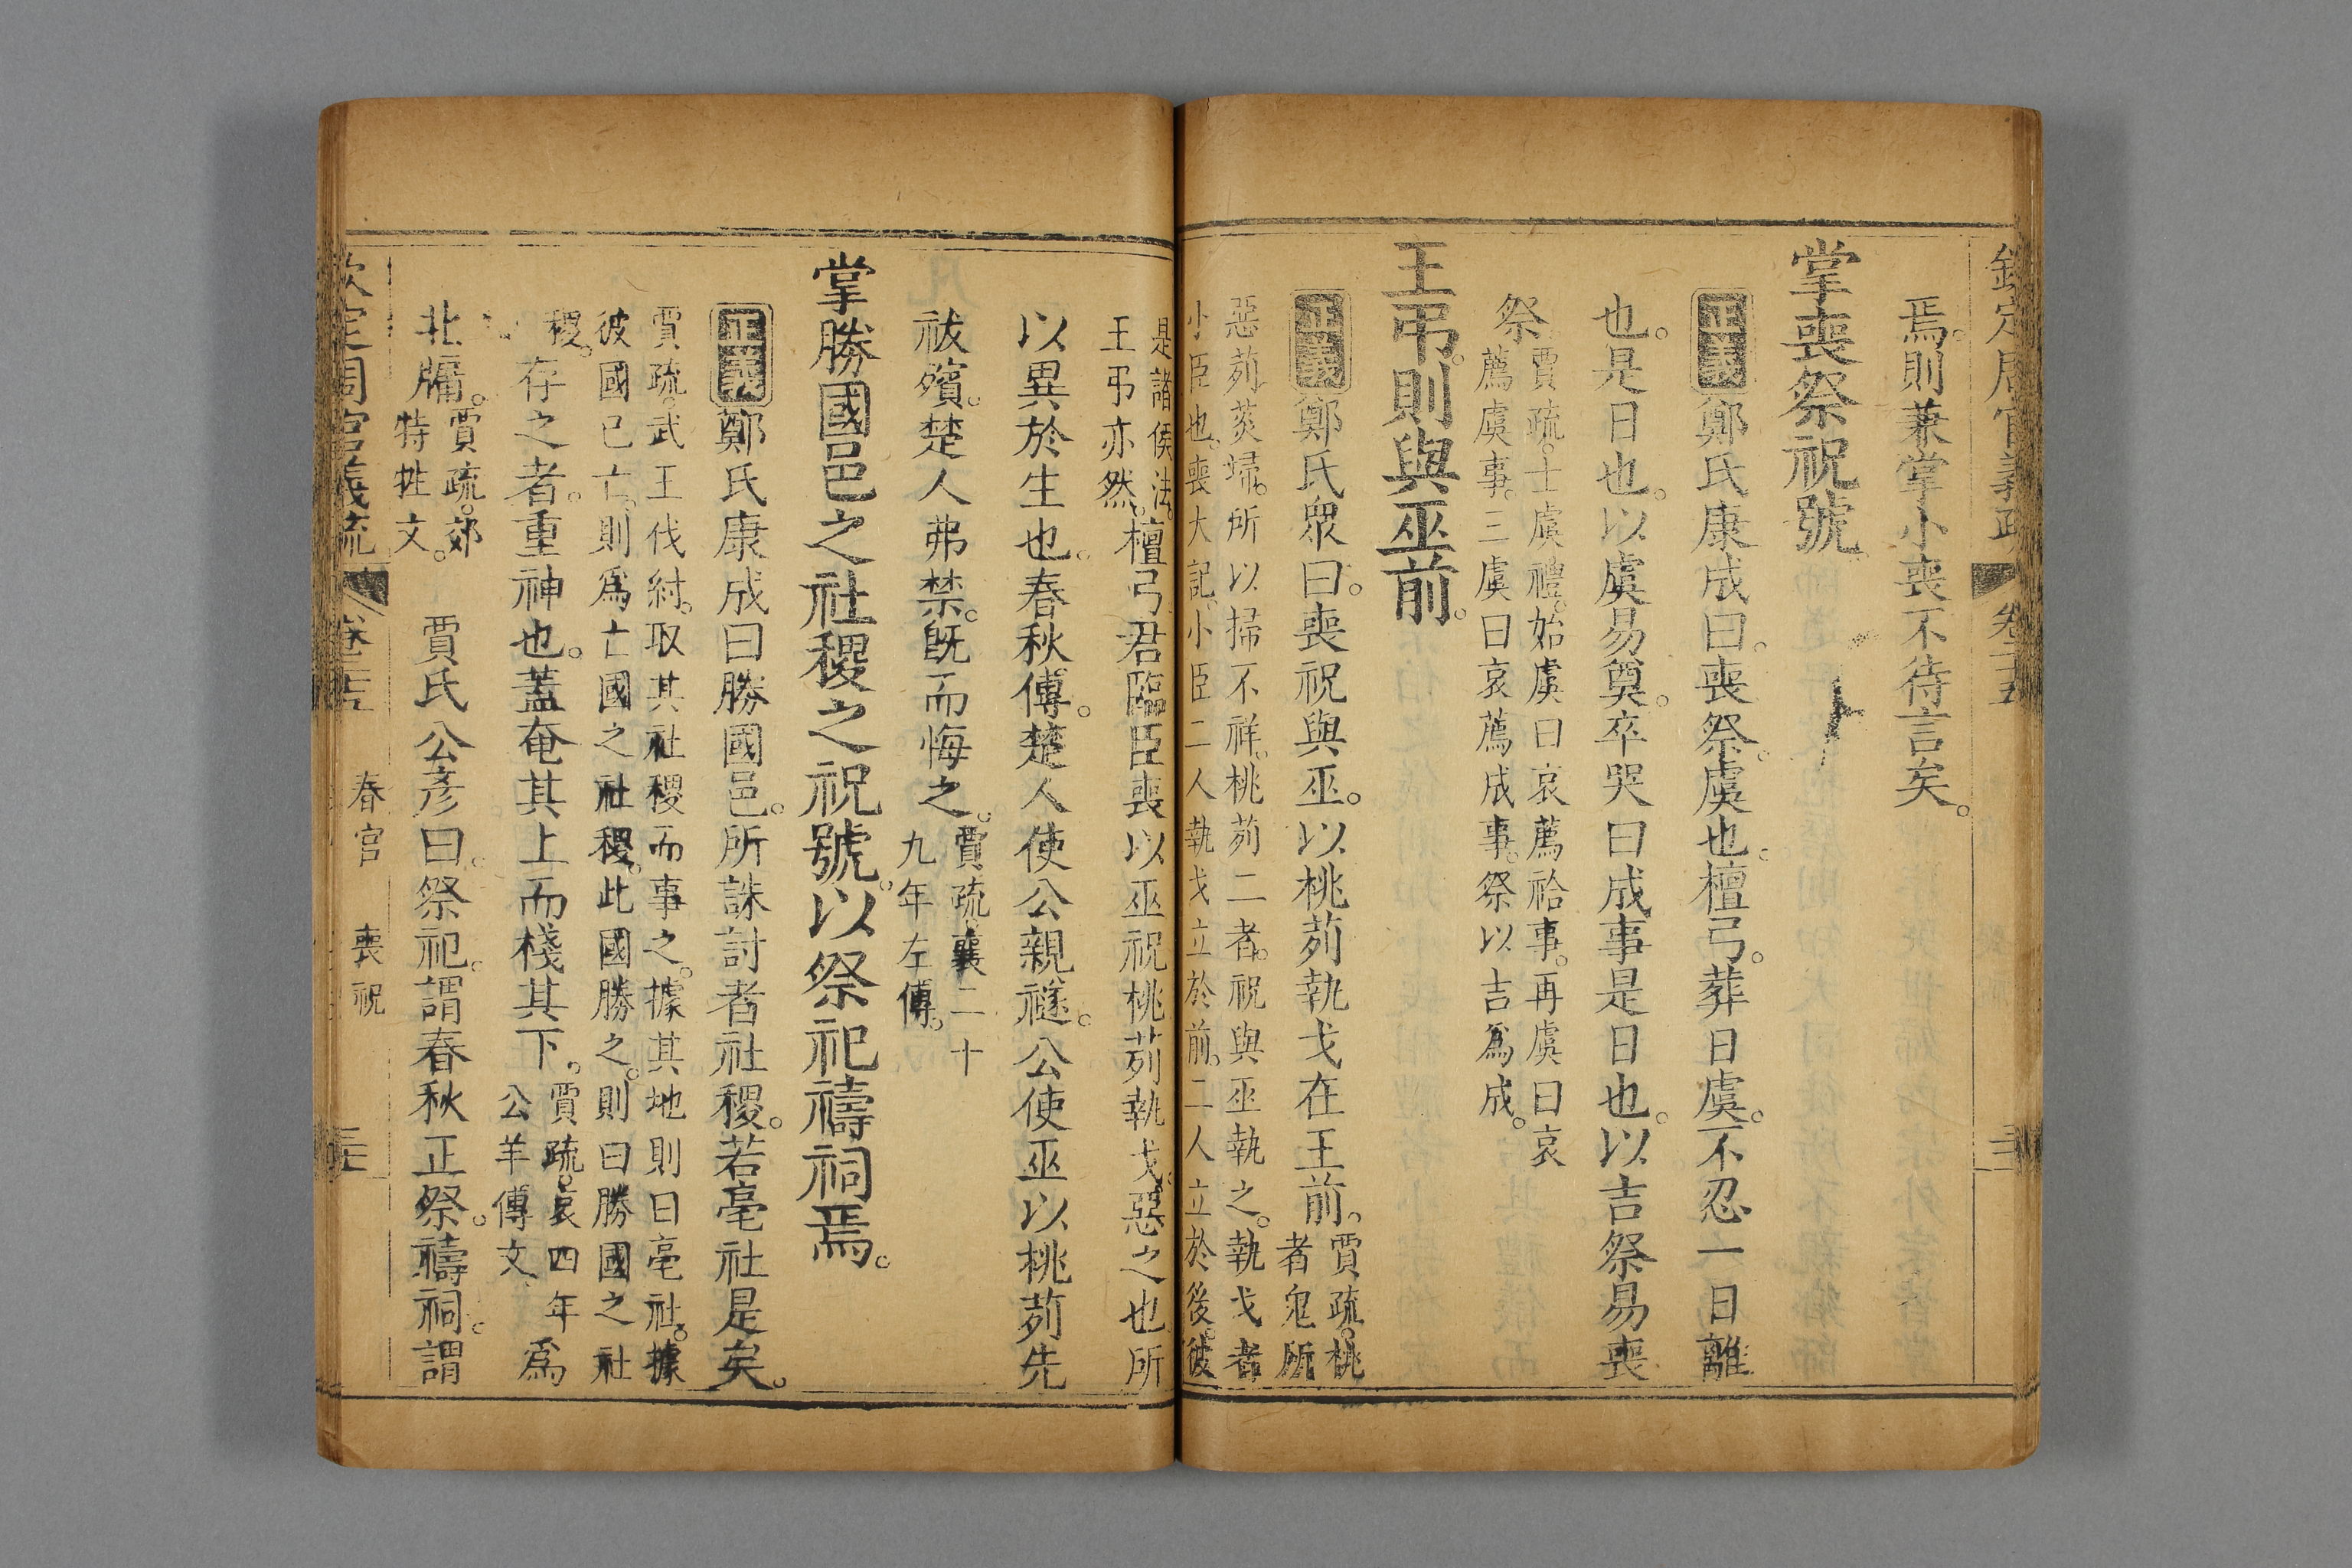 欽定周官義疏 卷二十五
焉。則兼掌小喪不待言矣。
掌喪祭祝號
正義鄭氏康成曰。喪祭。虞也。檀弓。葬日虞。不忍一日離
也。是日也。以虞易奠。卒哭曰成事是日也。以吉祭易喪
祭
賈疏。士虞禮。始虞曰哀薦祫事。再虞曰哀
薦虞事。三虞曰哀薦成事。祭以吉為成。
王弔。則與巫前。
正義鄭氏眾曰。喪祝與巫。以桃茢執戈在王前。
賈疏。桃
者鬼所
惡茢萑埽。所以掃不祥。桃茢二者。祝與巫執之。執戈者
小臣也。喪大記。小臣二人執戈立於前。二人立於後。彼
是諸侯法。
王弔亦然。
檀弓君臨臣喪以巫祝桃茢執戈。惡之也所
以異於生也。春秋傳。楚人使公親襚。公使巫以桃茢先
祓殯。楚人弗禁。既而悔之。
賈疏。襄二十
九年左傳。
掌勝國邑之社稷之祝號。以祭祀禱祠焉。
正義鄭氏康成曰勝國邑。所誅討者社稷。若亳社是矣。
賈疏。武王伐紂。取其社稷而事之。據其地則曰亳社。據
彼國已亡。則為亡國之社稷。此國勝之。則曰勝國之社
稷。
存之者。重神也。蓋奄其上而棧其下。
賈疏。哀四年
公羊傳文。
為
北牖。
賈疏。郊
特牲文。
賈氏公彥曰。祭祀。謂春秋正祭。禱祠。謂
欽定周官義疏 卷二十五 春官 喪祝